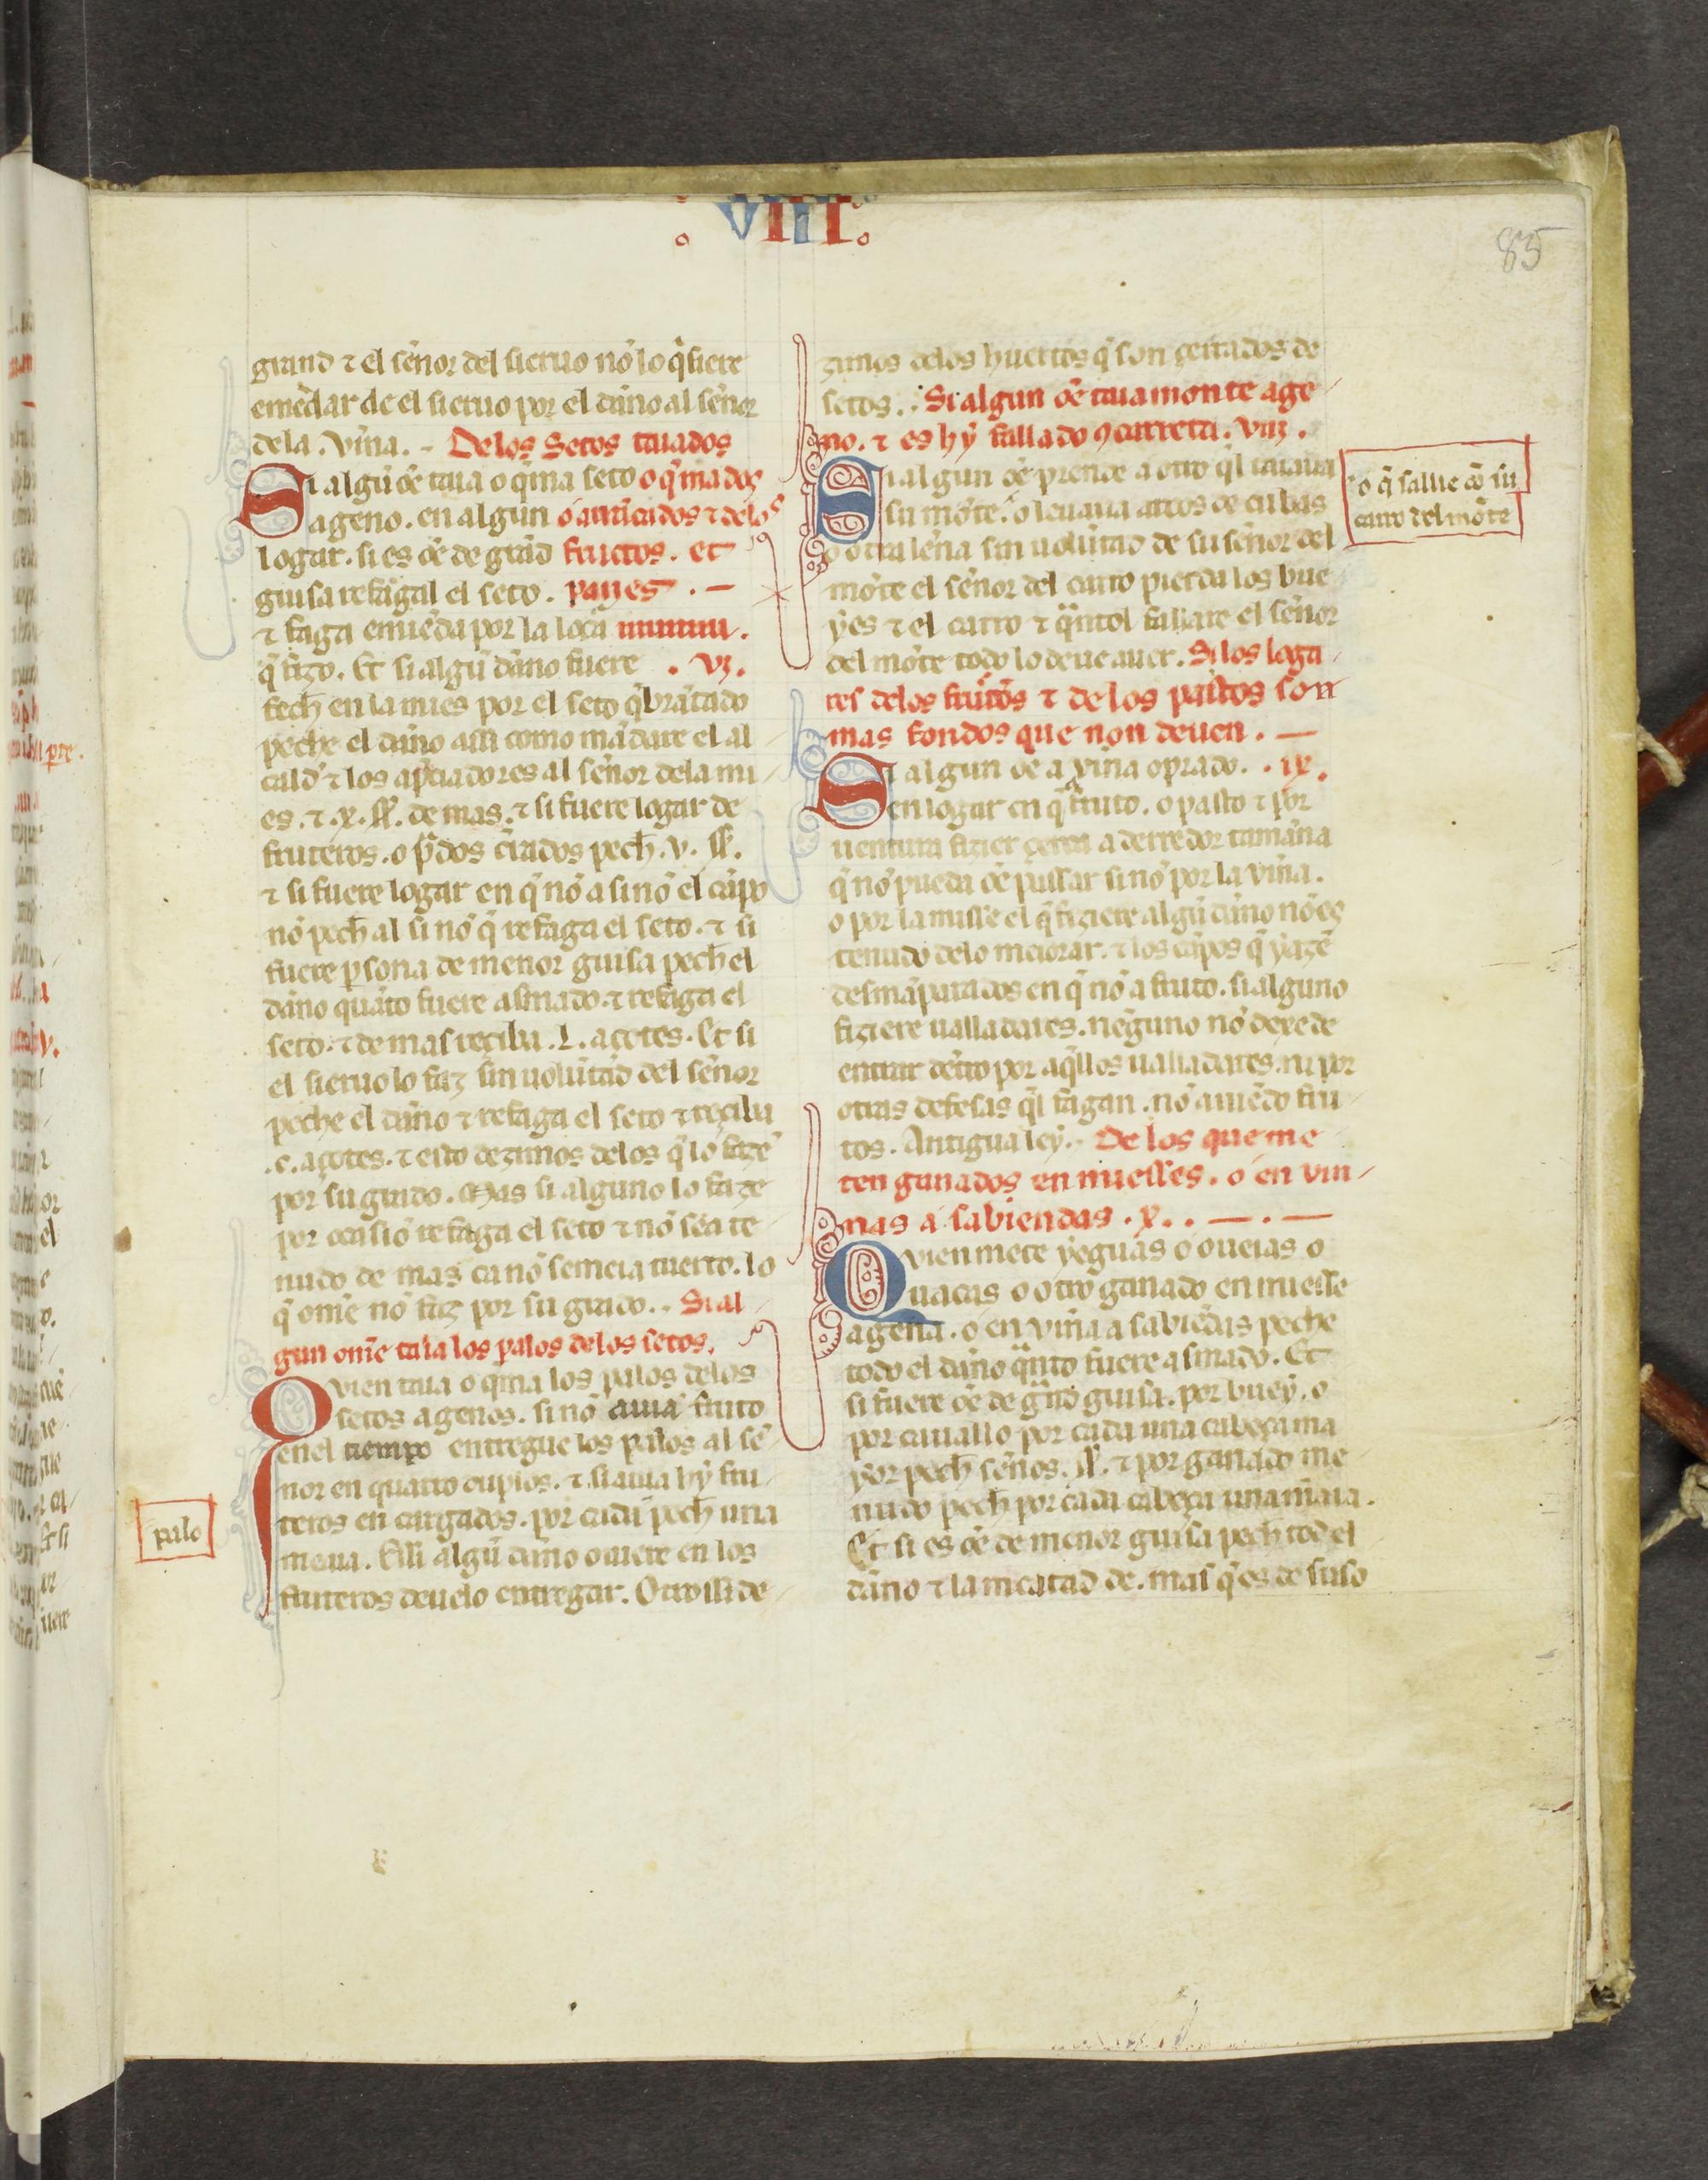 VIII
85
grand ⁊ el señor del sieruo nõ lo q̃siere
emẽdar de el sieruo por el dãno al señor
dela .viña. - Delos Setos taiados
Si algũ oẽ taia o q̃ma seto o q̃mados
ageno. en algun o arrãcados ⁊ delos
logar. si es oẽ de grãd fructos. et
guisa refagal el seto. panes. —
⁊ faga emiẽda por la locã
q̃ fizo. Et si algũ dãno fuere . VI.
fech̃ en la mies por el seto q̃brãtado
peche el dãno assi como mãdare el al
cald̃ ⁊ los apciadores al señor dela mi
es. ⁊ .x. ss̃. de mas. ⁊ si fuere logar de
fruteros. o p̃dos c̃rados pech̃ .v. ss̃.
⁊ si fuere logar en q̃ nõ a si nõ el cãpo
nõ pech̃ al si nõ q̃ refaga el seto. ⁊ si
fuere psona de menor guisa pech̃ el
dãno quãto fuere asmado. ⁊ refaga el
seto. ⁊ de mas reçiba .L. açotes. Et si
el sieruo lo faz sin uolũtad del señor
peche el dãno ⁊ refaga el seto ⁊ reçiba
.c. açotes. ⁊ esto dezimos delos q̃ lo fazẽ
por su grado. Mas si alguno lo faze
por ocasiõ refaga el seto ⁊ nõ sea te
nudo de mas ca nõ semeia tuerto. lo
q̃ omẽ nõ faz por su grado.. Si al
gun omẽ taia los palos delos setos.
Quien taia o q̃ma los palos delos
setos agenos. si nõ auia fruto
en el tiempo entregue los palos al se
ñor en quatro duplos. ⁊ si auia hy fru
teros en cargados. por cada pech̃ una
meaia. E si algũ dãno ouiere en los
fruteros deuelo entregar. Otrossi de
palo
zimos delos huertos q̃ son çerrados de
setos. : Si algun oẽ taia monte age
no. ⁊ es hy fallado 9 carreta. VIII.
Si algun oẽ prende a otro q̃l taiaua
su mõte. o leuaua arcos de cubas
o otra leña sin uolũtad de su señor del
mõte el señor del carro pierda los bue
yes ⁊ el carro ⁊ q̃ntol fallare el señor
del mõte todo lo deue auer. Si los loga
res delos frutos ⁊ de los pastos son
mas fondos que non deuen. —
Si algun oẽ a viña o prado. . IX.
en logar en q̃ a fruto. o pasto ⁊ por
uentura fizier çerca a derredor tamaña
q̃ nõ pueda oẽ passar si nõ por la viña.
o por la miesse el q̃ fiziere algũ dãno nõ es
tenudo delo meiorar. ⁊ los cãpos q̃ yazẽ
desmãparados en q̃ nõ a fruto. si alguno
fiziere ualladares. neguno nõ dexe de
entrar dẽtro por aq̃llos ualladares. ni por
otras defesas q̃l fagan. nõ auiẽdo fru
tos. Antigua ley.. De los que me
ten ganados en miesses. o en vin
nas a sabiendas .X. . — . —
Quien mete yeguas o oueias o
uacas o otro ganado en miesse
agena. o en viña a sabiẽdas peche
todo el dãno q̃nto fuere asmado. Et
si fuere oẽ de g̃nd guisa. por buey. o
por cauallo por cada una cabeça ma
yor pech̃ seños. ss̃. ⁊ por ganado me
nudo pech̃ por cada cabeça una meaia.
Et si es oẽ de menor guisa pech̃ tod el
dãno ⁊ la meatad de. mas q̃ es de suso
o q̃ sallie cõ su
carro del mõte